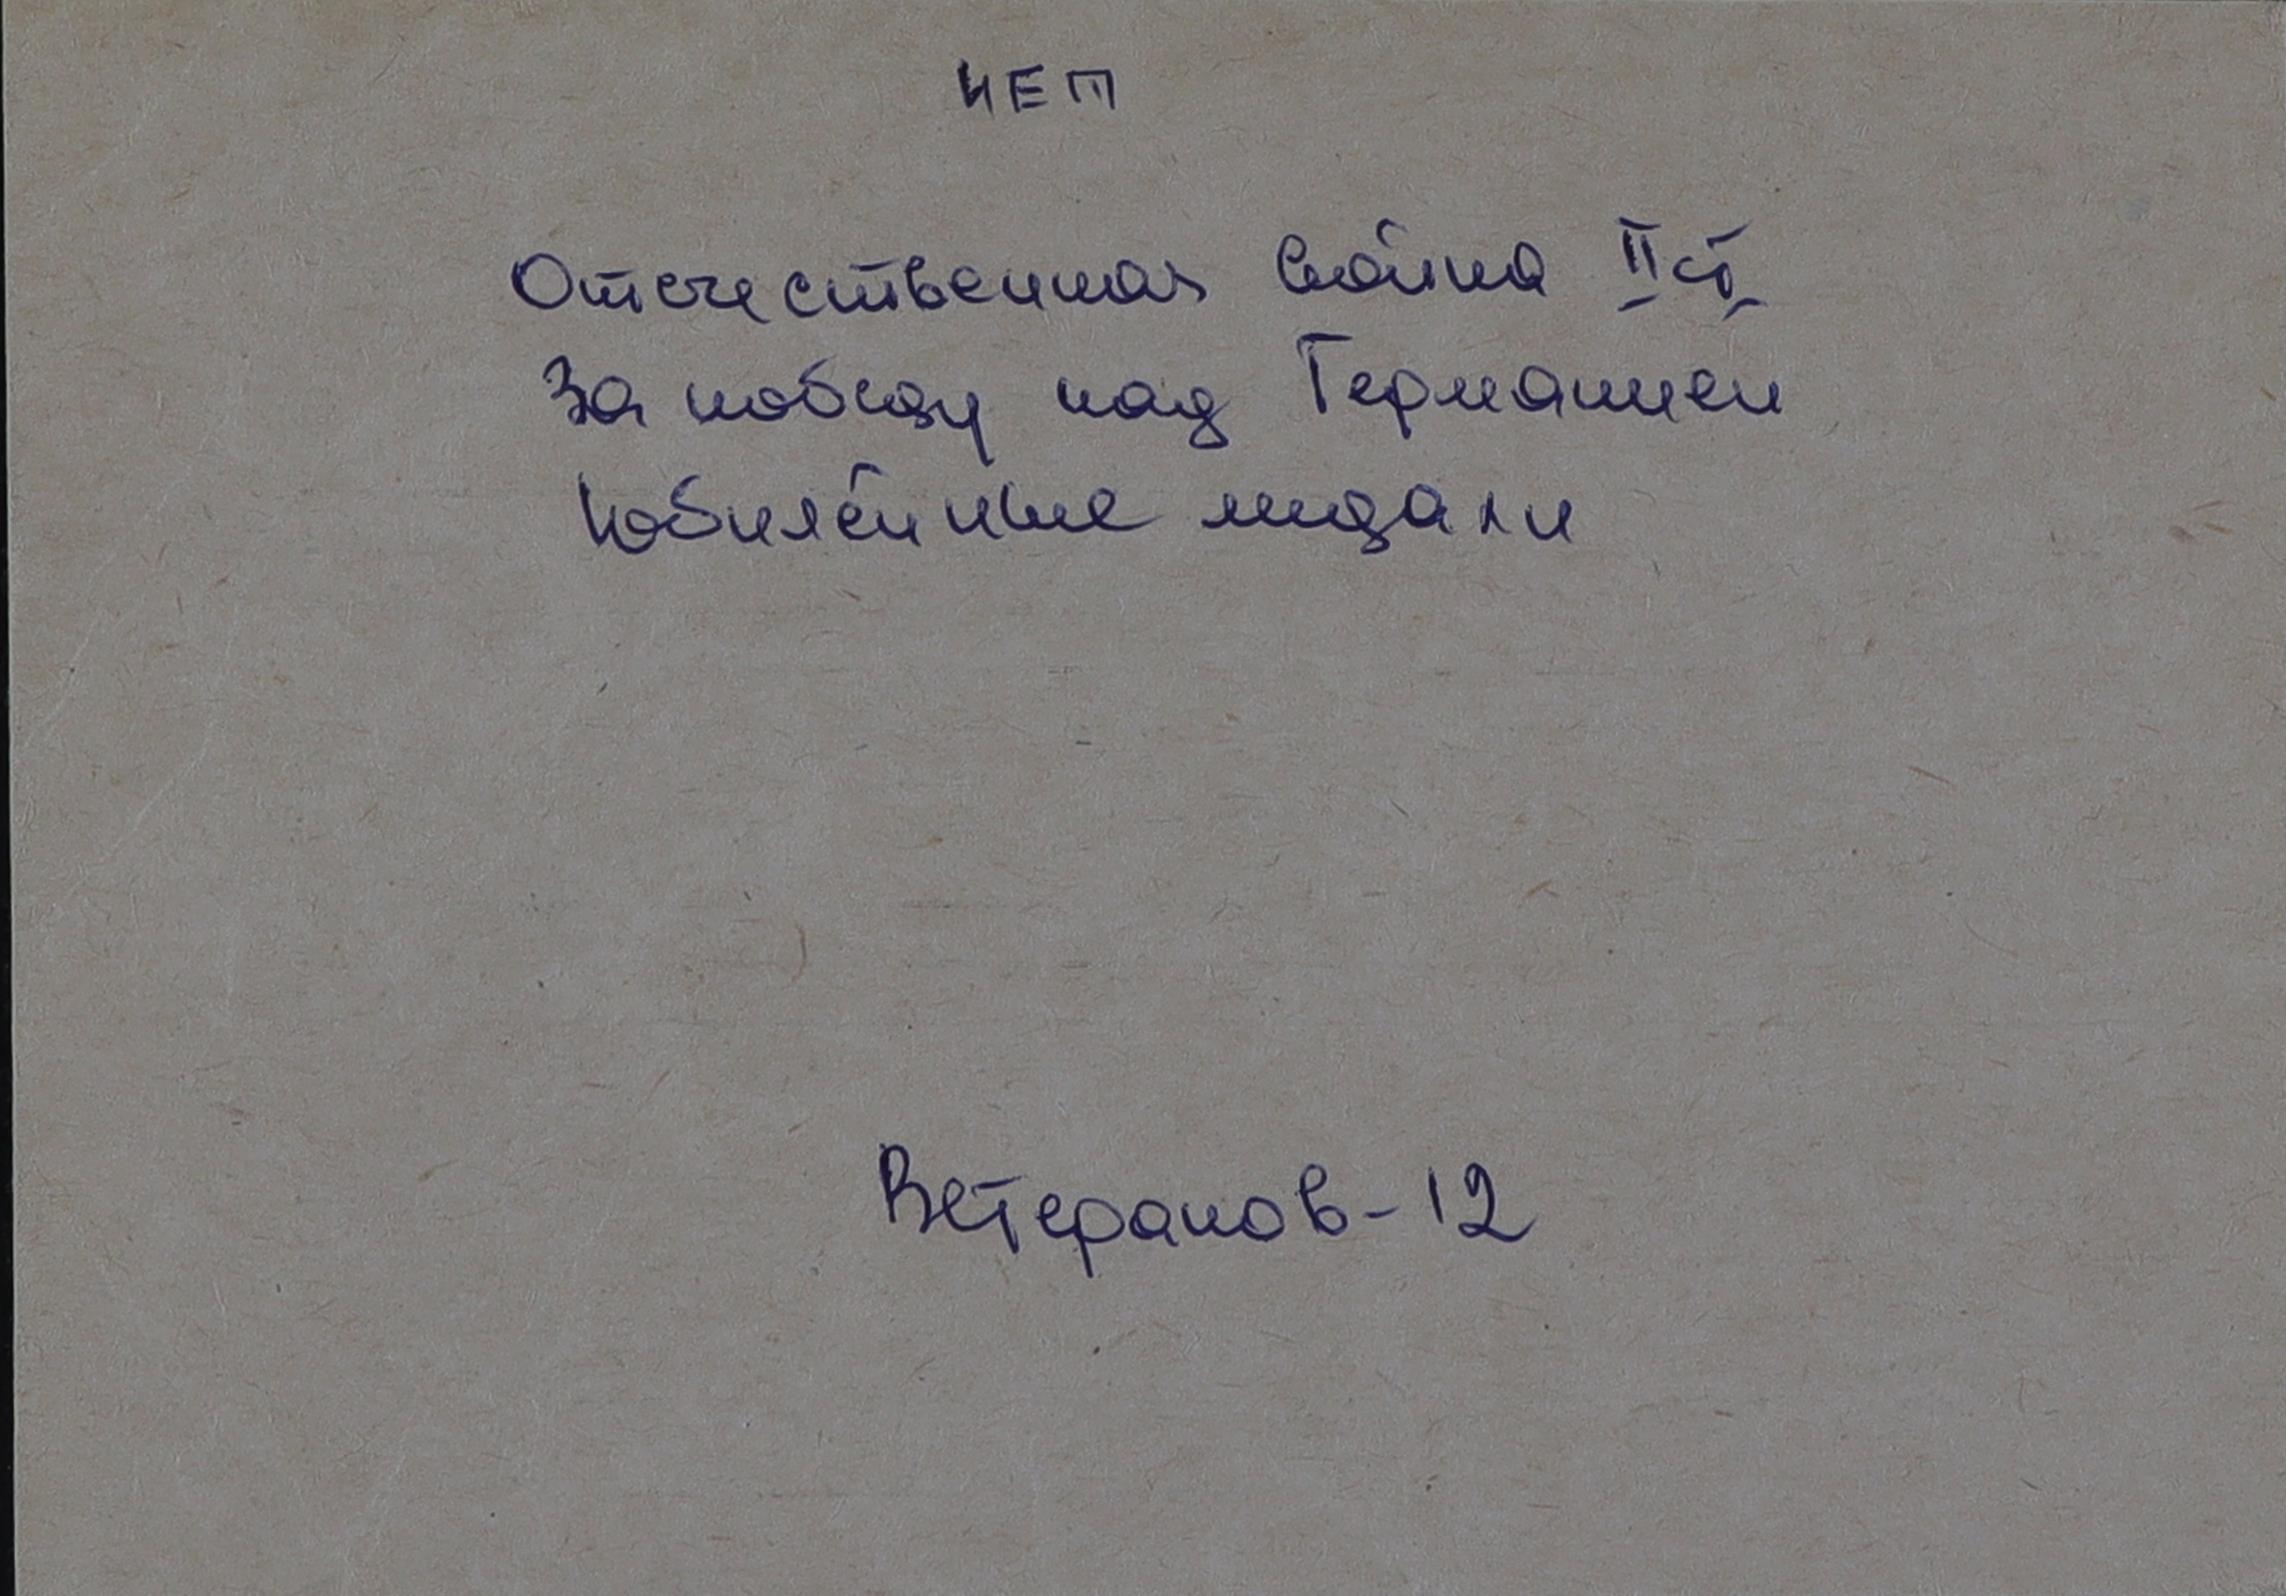 НЕТ
Отечественная война II ст.
За победу над Германией
Юбилейные медали
Ветеранов-12